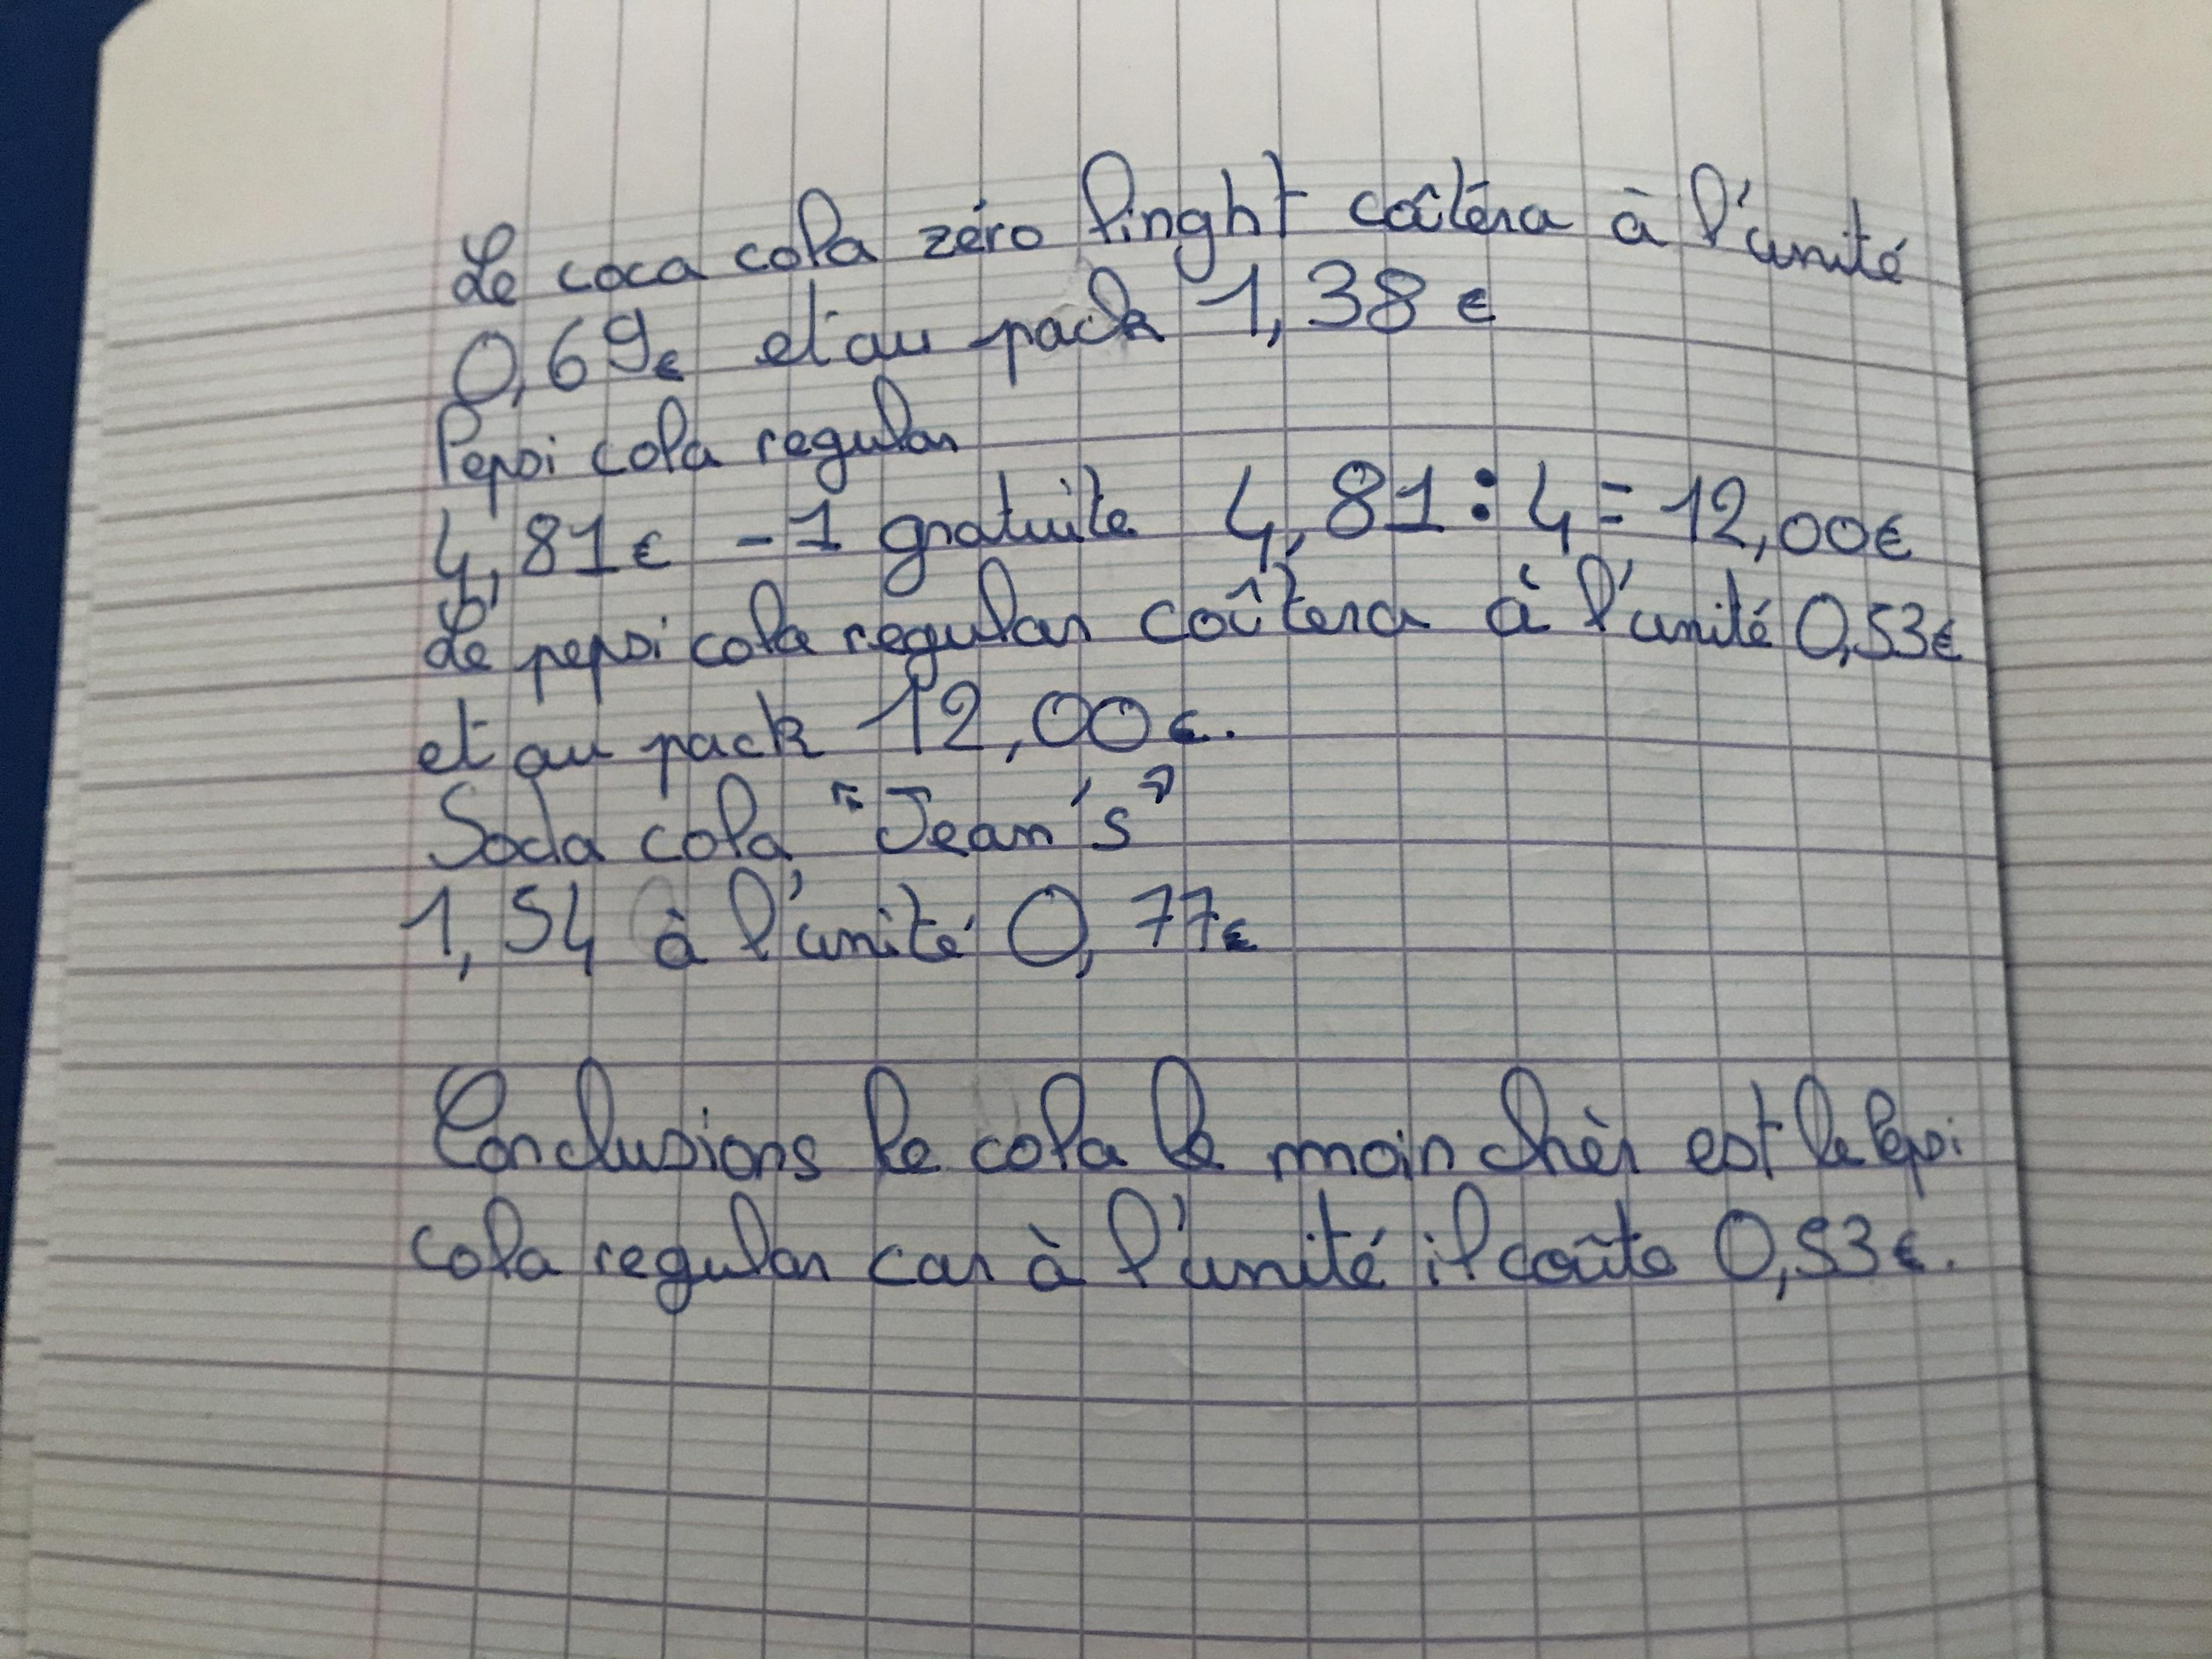 Le coca cola zéro linght coûtéra à l'unité
0,69€ et au pack 1,38 €
Pepsi cola regular
4,81€ - 1 gratuite 4,81 : 4 = 12,00€
Le pepsi cola regular coûtera à l'unité 0,53€
et au pack 12,00€.
Soda cola "Jean's"
1,54 à l'unité 0,77€
Conclusions le cola le moin chèr est le Pepsi
cola regular car à l'unité il coûte 0,53€.